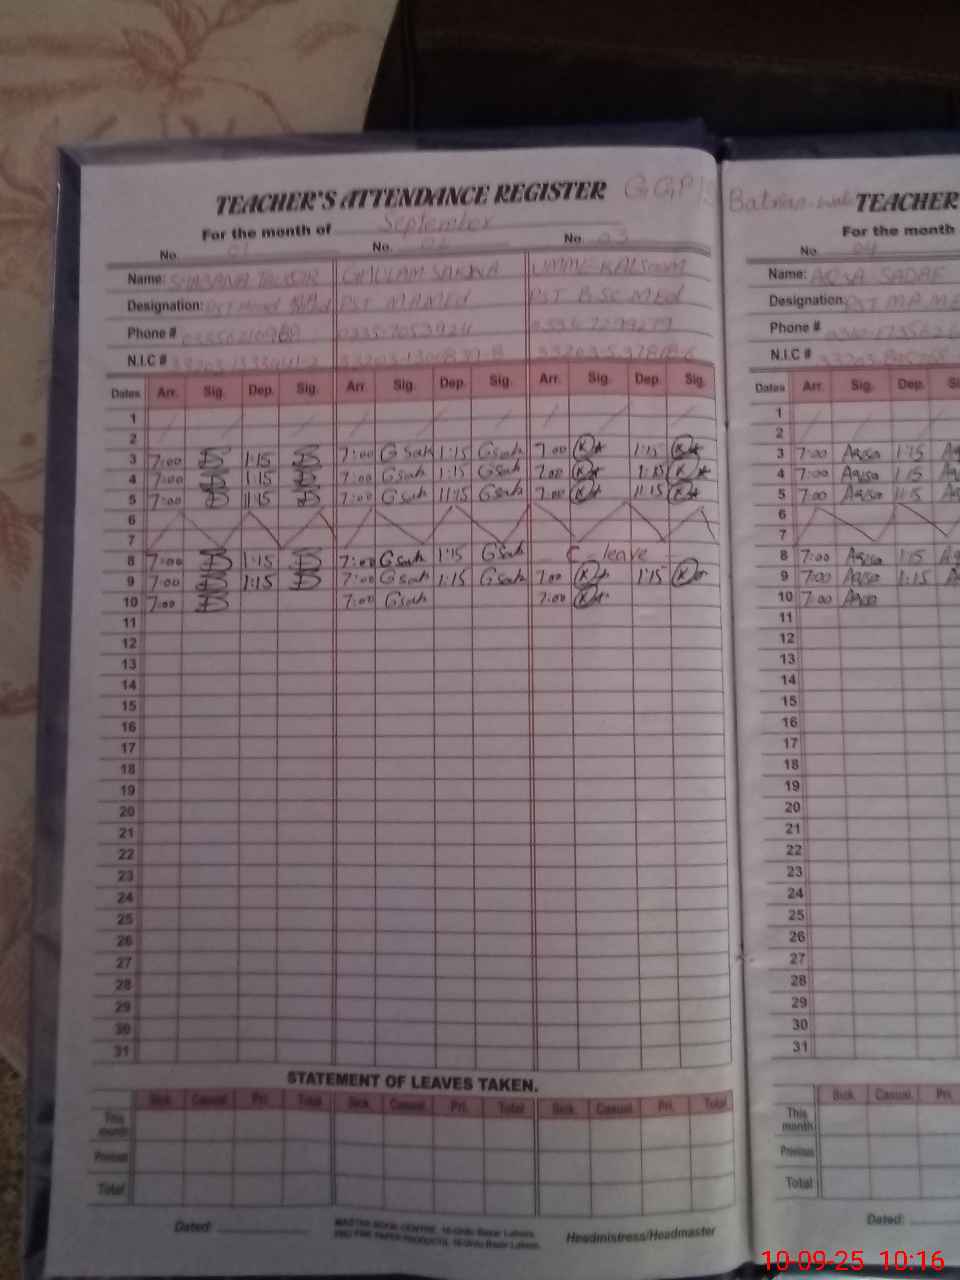 TEACHER'S ATTENDANCE REGISTER
For the month of September
No. 01 No. 02 No. 03
Name: SHABANA GHULAM SAKINA UMME KALSOOM
Designation: PST PST M.A M.Ed PST B.SC M.Ed
Phone #
N.I.C #
Dates Arr. Sig. Dep. Sig. Arr. Sig. Dep. Sig. Arr. Sig. Dep. Sig.
1
2
3 7:00 1:15 7:00 G Sak 1:15 G Sak 7:00 1:15
4 7:00 1:15 7:00 G Sak 1:15 G Sak 7:00 1:15
5 7:00 11:15 7:00 G Sak 11:15 G Sak 7:00 11:15
6
7
8 7:00 1:15 7:00 G Sak 1:15 G Sak C - leave
9 7:00 1:15 7:00 G Sak 1:15 G Sak 7:00 1:15
10 7:00 7:00 G Sak 7:00
11
12
13
14
15
16
17
18
19
20
21
22
23
24
25
26
27
28
29
30
31
STATEMENT OF LEAVES TAKEN.
Sick. Casual. Pri. Total Sick. Casual. Pri. Total Sick. Casual. Pri. Total
This month
Previous
Total
Dated:
Headmistress/Headmaster
TEACHER
For the month
No. 04
Name: AQSA SADAF
Designation: PST M.A
Phone #
N.I.C #
Dates Arr. Sig. Dep.
1
2
3 7:00 Aqsa 1:15
4 7:00 Aqsa 1:15
5 7:00 Aqsa 11:15
6
7
8 7:00 Aqsa 1:15
9 7:00 Aqsa 1:15
10 7:00 Aqsa
11
12
13
14
15
16
17
18
19
20
21
22
23
24
25
26
27
28
29
30
31
Sick Casual. Pri.
This month
Previous
Total
Dated:
10-09-25 10:16